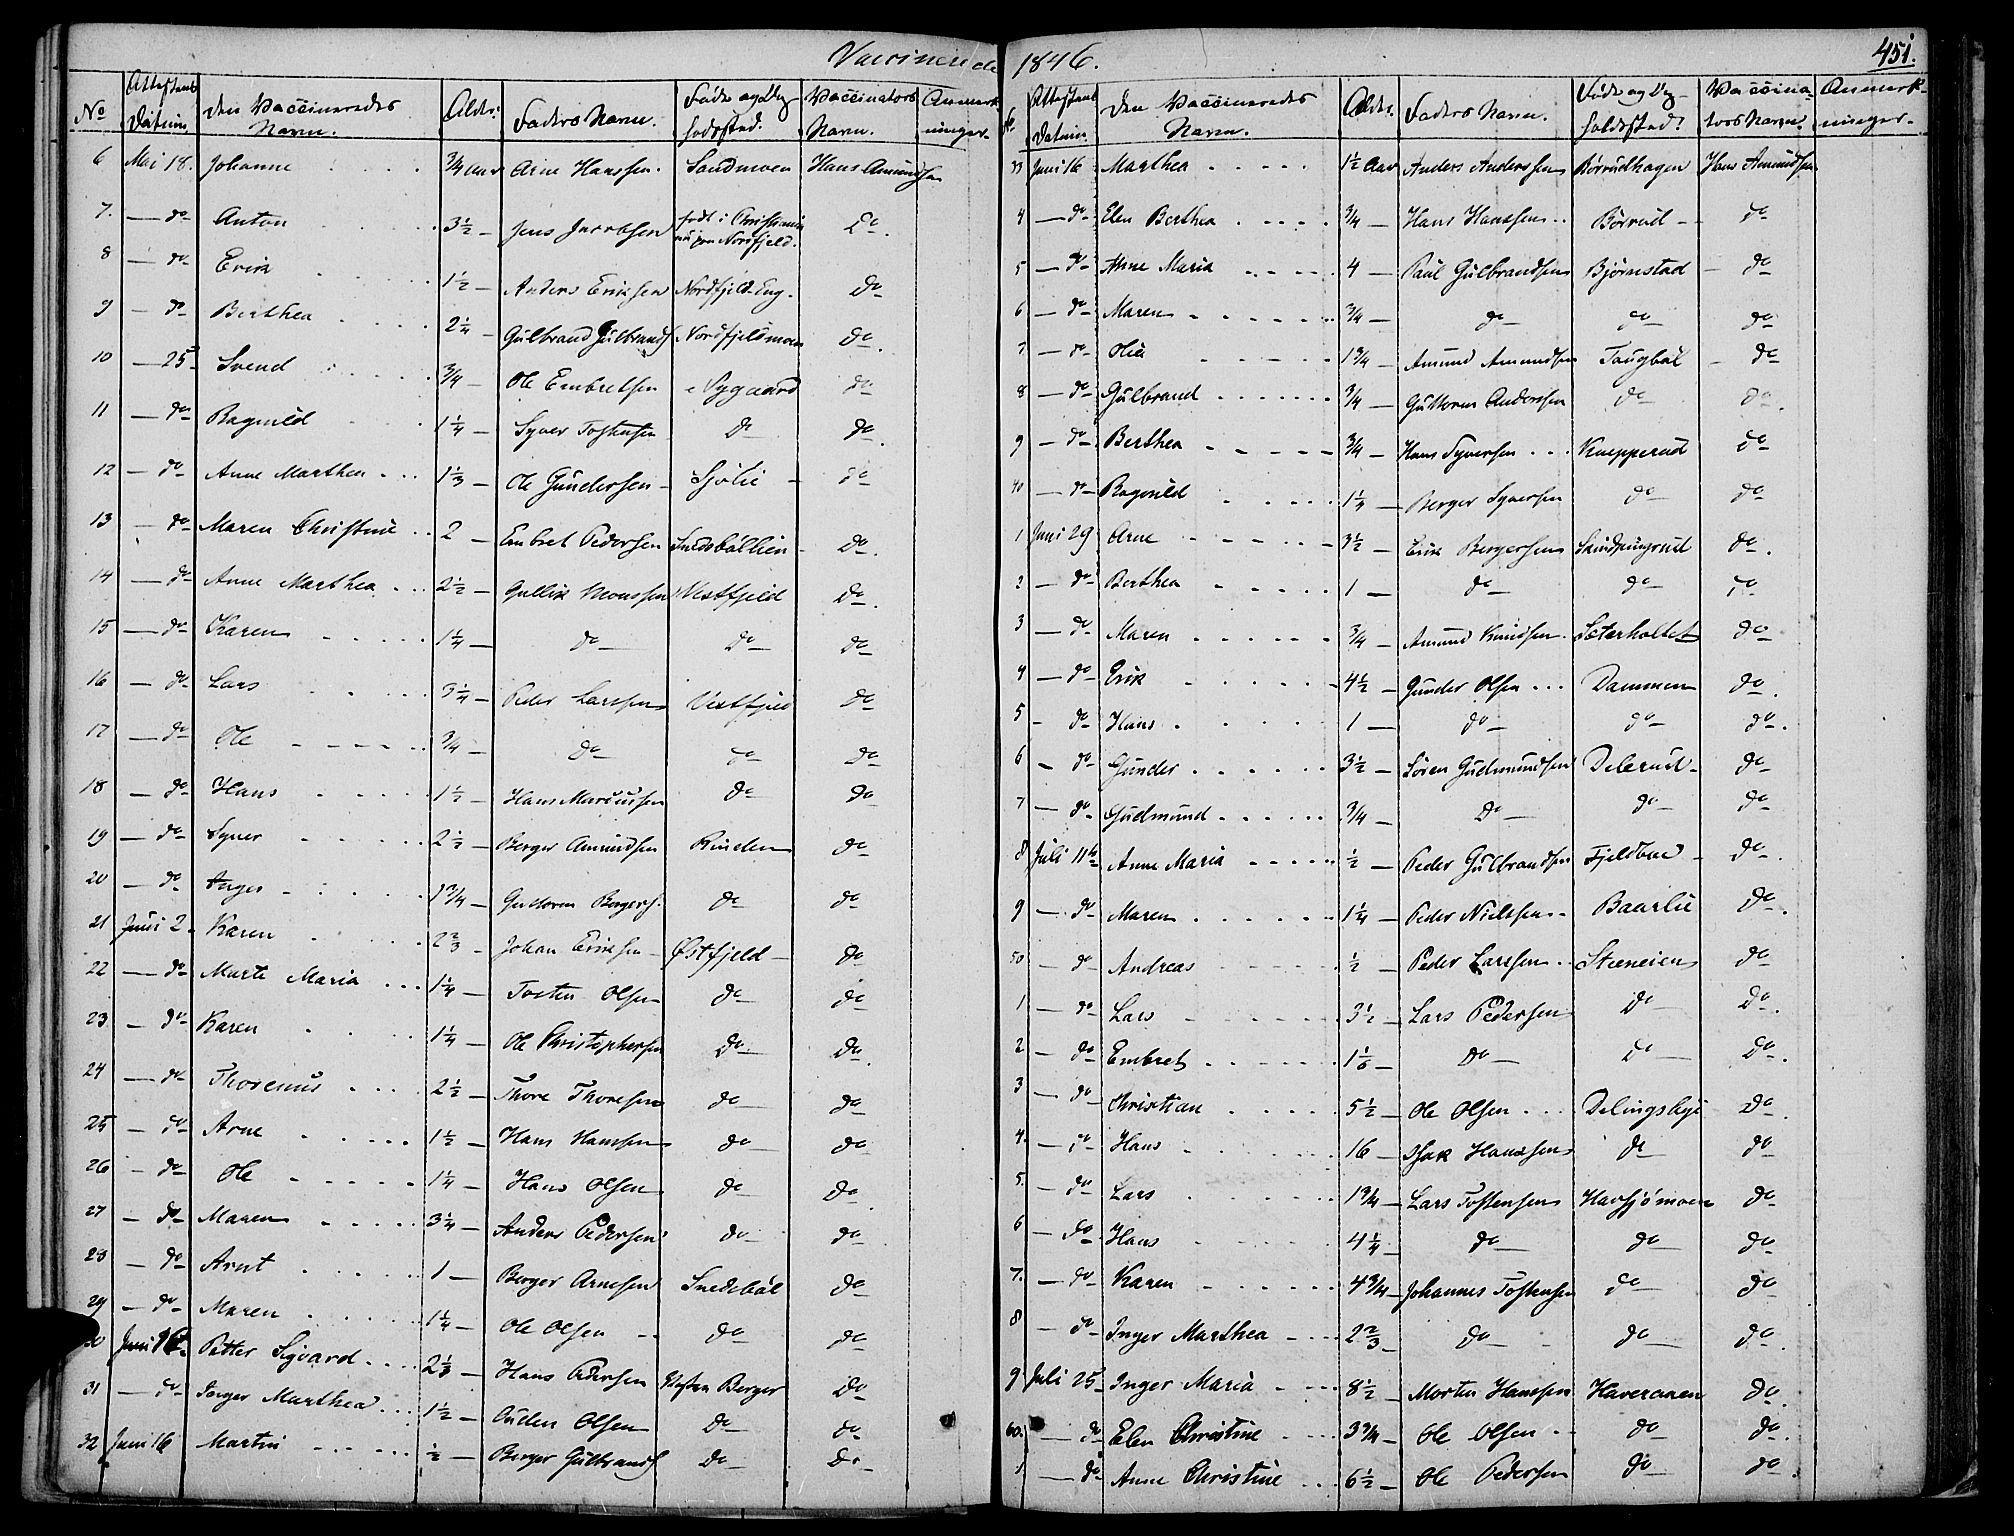 Vaccinerede 1846.
451.
No Attestens Datum Den Vaccineredes Navn. Alder. Faders Navn. Føde og Op- fodsted. Vaccinators Navn. Anmærk- ninger.
6 Mai 18. Johanne 3/4 Aar Arne Hanssen Sandmoen Hans Amundsen
7. — do Anton 3 1/2 — Jens Jacobsen født i Christiania nu paa Nordfjeld. do
8 — do Erik 1 1/2 — Anders Eriksen Nordfjeld-Eng. do
9 — do Berthea 2 1/4 — Gulbrand Gulbrands. Nordfjeldmoen do
10 — 25 Svend 3/4 — Ole Embretsen Nygaard do
11 — do Ragnild 1 1/4 — Syver Tostensen do do
12 — do Anne Marthea 1 1/3 — Ole Gundersen Sjølie do
13 — do Maren Christine 2 — Embret Pedersen Snedsbøllien do
14 — do Anne Marthea 2 1/2 — Gullik Monssen Vestfjeld do
15 — do Karen 1 1/4 — do do do
16 — do Lars 3 1/4 — Peder Larssen Vestfjeld do
17 — do Ole 3/4 — do do do
18 — do Hans 1 1/2 — Hans Marcussen do do
19 — do Syver 2 1/2 — Berger Amundsen Rinden do
20 — do Inger 1 3/4 — Guttorm Bergers. do do
21 Juni 2. Karen 2 2/3 — Johan Eriksen Østfjeld do
22 — do Marte Maria 1 1/4 — Tosten Olsen do do
23 — do Karen 1 1/4 — Ole Christophersen do do
24 — do Thorenus 2 1/2 — Thore Thoresen do do
25 — do Arne 1 1/2 — Hans Hanssen do do
26 — do Ole 1 1/4 — Hans Olsen do do
27 — do Maren 3 1/4 — Anders Pedersen do do
28 — do Arnt 1 — Berger Arnesen Snedsbøl do
29 — do Maren 1 1/4 — Ole Olsen do do
30 Juni 16 Petter Sigvard 2 1/3 — Hans Pedersen Vestre Berger do
31 — do Inger Marthea 1 1/2 — Auden Olsen do do
32 Juni 16 Martin 1/2 — Berger Gulbrands. do do
No. Attestens Datum Den Vaccineredes Navn. Alder. Faders Navn. Føde og Op- holdssted. Vaccina- tors Navn. Anmærk- ninger.
33 Juni 16 Marthea 1 1/2 Aar Anders Anderssen Børrudhagen Hans Amundsen
4 — do Elen Berthea 3/4 — Hans Hanssen Børrud do
5 — do Anne Maria 4 — Paul Gulbrandsen Bjørnstad do
6 — do Maren 3/4 — do do do
7 — do Olia 1 3/4 — Amund Amundsen Taugbøl do
8 — do Gulbrand 3/4 — Guttorm Anderssen do do
9 — do Berthea 3/4 — Hans Syversen Knepperud do
40 — do Ragnild 1 1/4 — Berger Syversen do do
1 Juni 29 Arne 3 1/2 — Erik Bergersen Skindpungrud do
2 — do Berthea 1 — do do do
3 — do Maren 3/4 — Amund Knudsen Sæterholtet do
4 — do Erik 4 1/2 — Gunder Olsen Dammen do
5 — do Hans 1 — do do do
6 — do Gunder 3 1/2 — Søren Gudmundsen Delerud do
7 — do Gudmund 3/4 — do do do
8 Juli 11te Anne Maria 1/2 — Peder Gulbrandsen Fjeldbae do
9 — do Maren 1 1/4 — Peder Nielssen Baarlie do
50 — do Andreas 1/2 — Peder Larssen Steneien do
1 — do Lars 3 1/2 — Lars Pedersen do do
2 — do Embret 1 1/6 — do do do
3 — do Christian 5 1/2 — Ole Olsen Delingsbye do
4. — do Hans 16 — Isak Hanssen do do
5. — do Lars 1 3/4 — Lars Tostensen Havsjømoen do
6 — do Hans 4 1/4 — do do do
7. — do Karen 4 3/4 — Johannes Tostensen do do
8 — do Inger Marthea 2 2/3 — do do do
9 Juli 25 Inger Maria 8 1/2 — Morten Hanssen Haveraaen do
60. — do Elen Christine 3 3/4 — Ole Olsen do do
1 — do Anne Christine 6 1/2 — Ole Pedersen do do